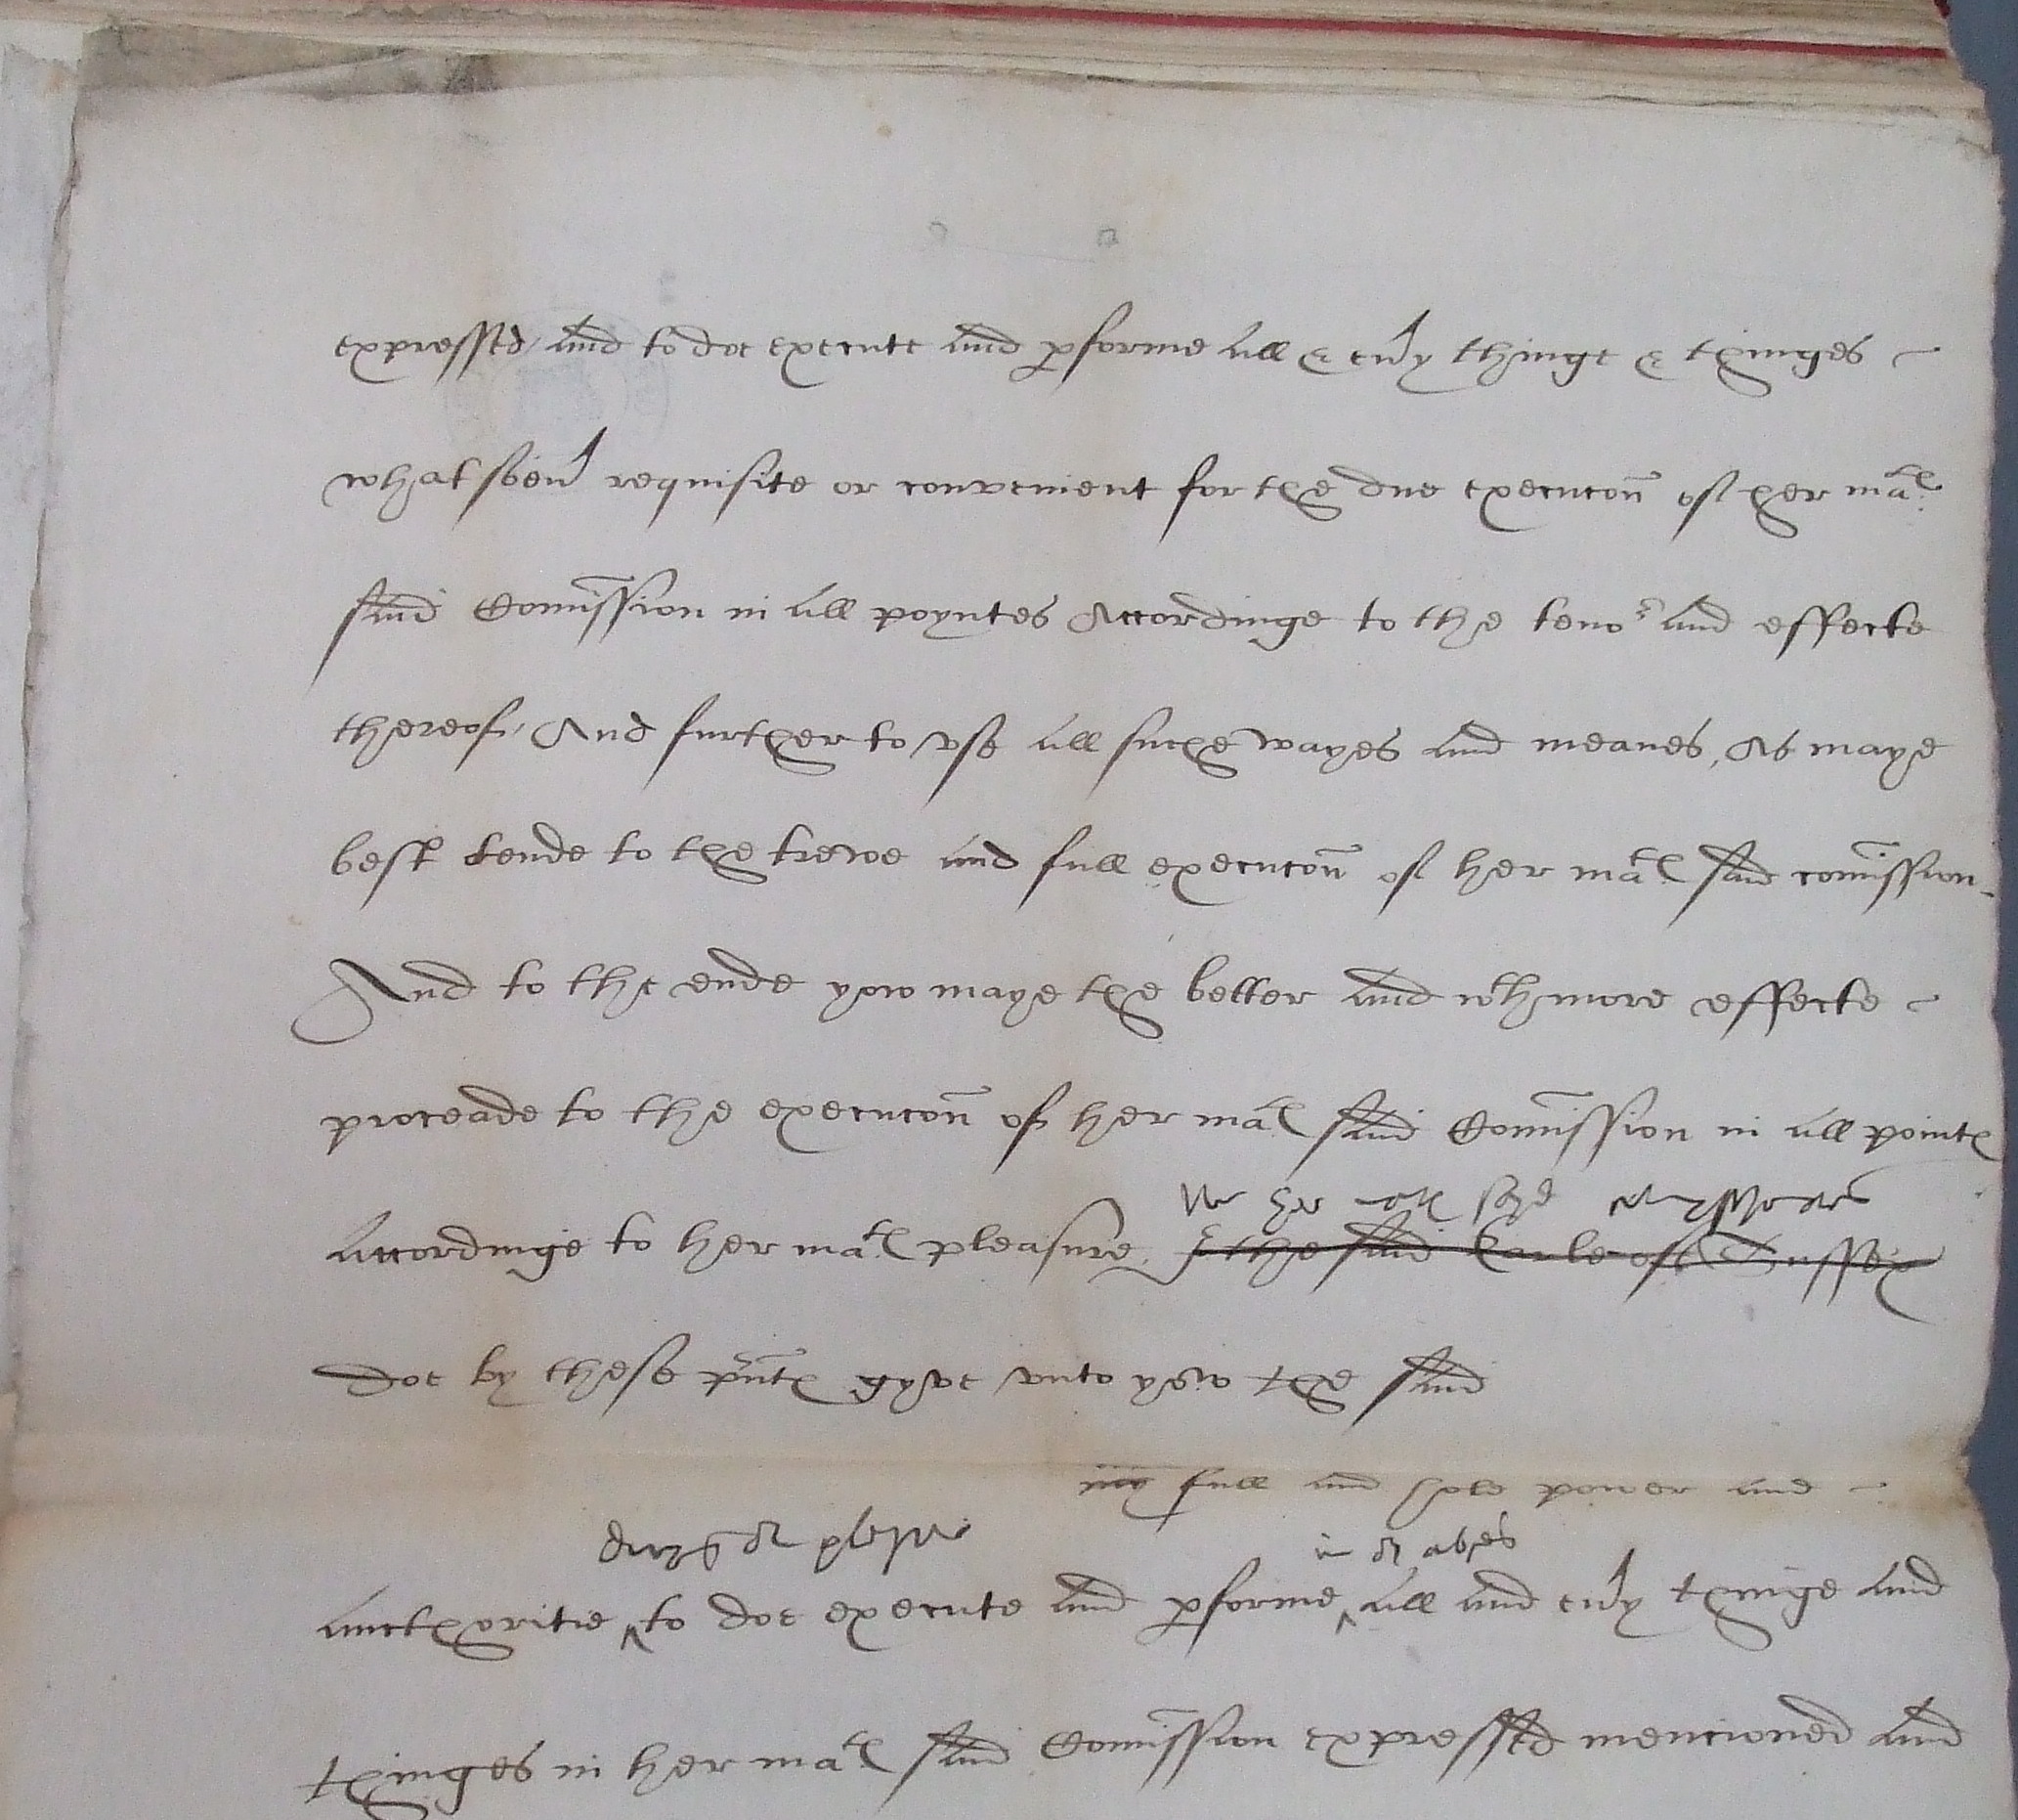 expressed, and to doe execute and pforme all & eu'y thinge & thinges
whatsoeu' requisite or convenient for the due execucon̄ of her ma͡tꝭ
said Com̄ission in all poyntes Accordinge to the teno:r and effecte
thereof, And further to vse all suche wayes and meanes, As maye
best tende to the trewe and full execucon̄ of her ma͡tꝭ said com̄ission
And to the ende yow maye the better and wth more effecte
proceade to the execucon̄ of her ma͡tꝭ said Com̄ission in all pointꝭ
We her said
accordinge to her ma͡tꝭ pleasure, I the said Earle of Sussex
doe by these pn̄tꝭ gyve vnto yow the said
my full and hole power and
authoritie to doe execute and pforme all and eu'y thinge and
thinges in her ma͡tꝭ said Com̄ission expressed mencioned and